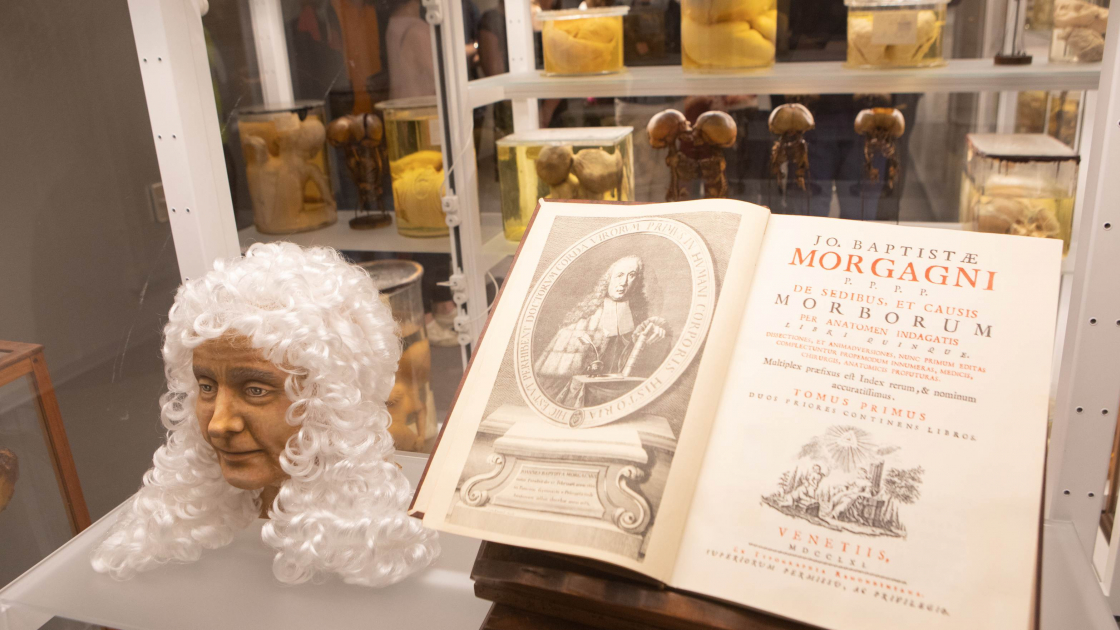 VIRORUM PRIMUS IN HUMANI CORPORIS HISTORIA
JO. BAPTISTÆ
MORGAGNI
P. P. P. P.
DE SEDIBUS, ET CAUSIS
MORBORUM
PER ANATOMEN INDAGATIS
LIBRI QUINQUE.
DISSECTIONES, ET ANIMADVERSIONES, NUNC PRIMUM EDITAS
COMPLECTUNTUR PROPEMODUM INNUMERAS, MEDICIS,
CHIRURGIS, ANATOMICIS PROFUTURAS.
Multiplex præfixus est Index rerum, & nominum
accuratissimus.
TOMUS PRIMUS
DUOS PRIORES CONTINENS LIBROS.
VENETIIS,
MDCCLXI.
EX TYPOGRAPHIA REMONDINIANA.
SUPERIORUM PERMISSU, AC PRIVILEGIO.